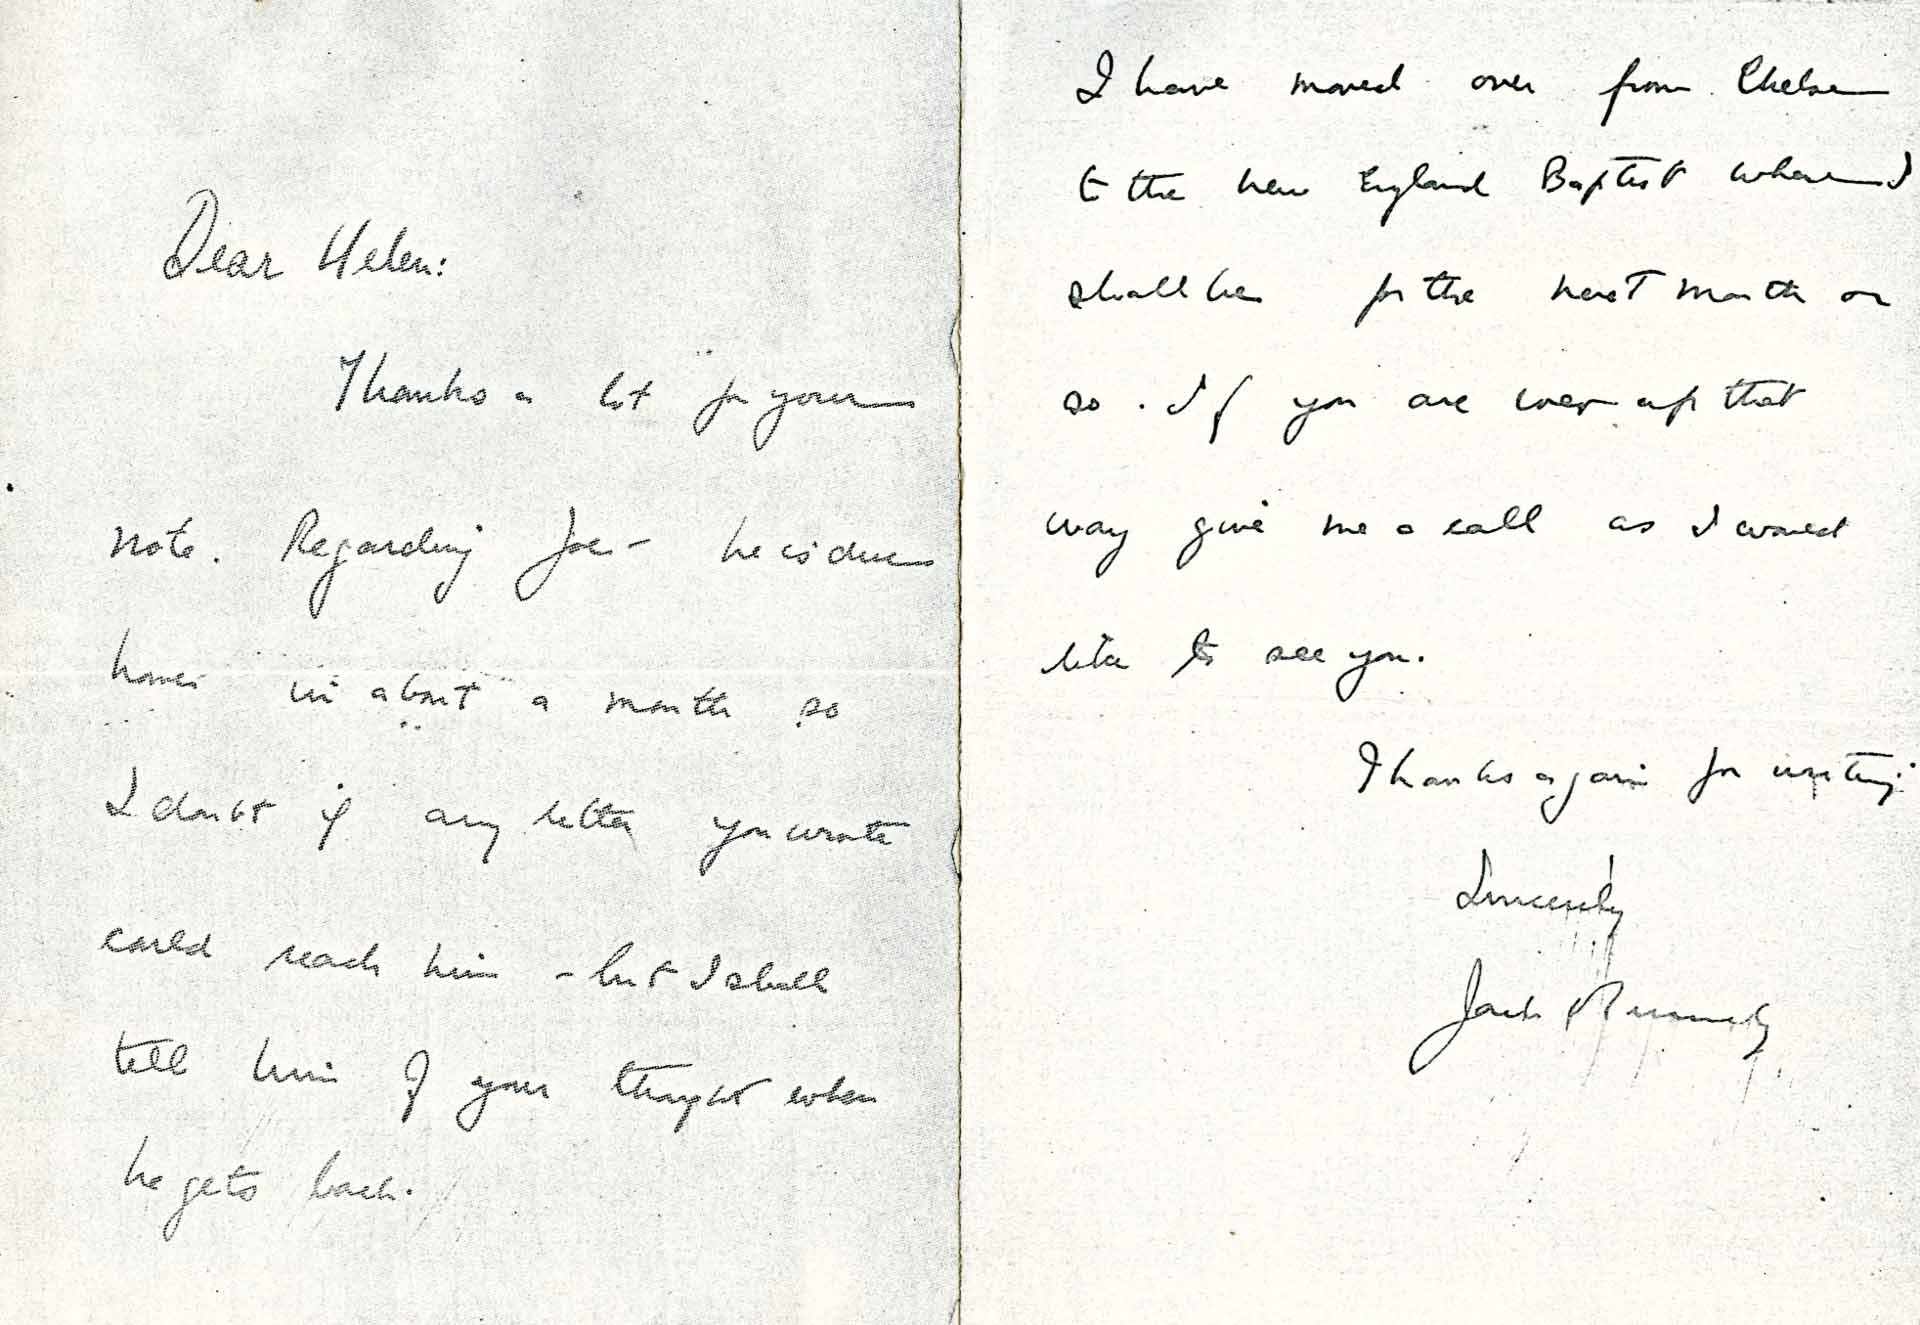 Dear Helen:
Thanks a lot for your
note. Regarding Joe - he is due
home in about a month so
I doubt if any letter you wrote
could reach him - but I shall
tell him of your thought when
he gets back.
I have moved over from Chelsea
to the New England Baptist where I
shall be for the next month or
so. If you are ever up that
way give me a call as I would
like to see you.
Thanks again for writing
Sincerely
Jack Kennedy